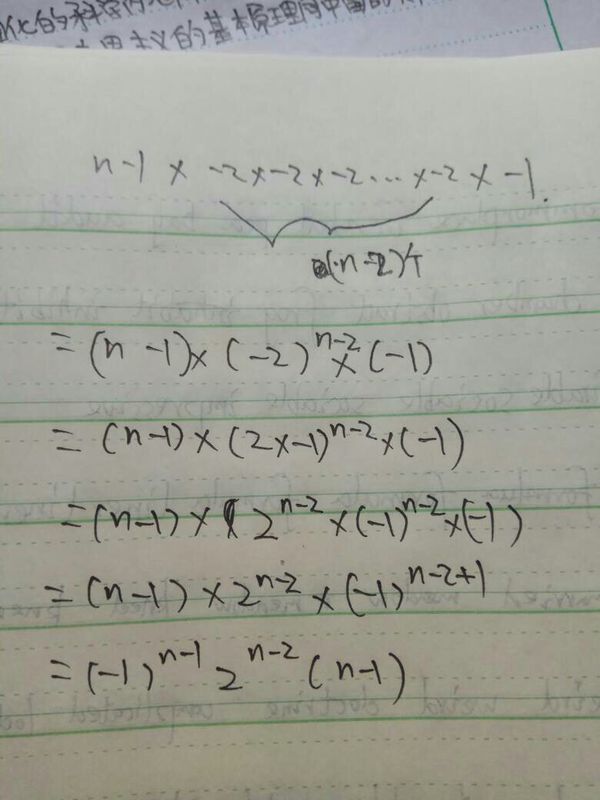 的基本原理同中国的
n-1 × -2×-2×-2...×-2×-1.
(n-2)个
=(n-1)×(-2)^{n-2}×(-1)
=(n-1)×(2×-1)^{n-2}×(-1)
=(n-1)×2^{n-2}×(-1)^{n-2}×(-1)
=(n-1)×2^{n-2}×(-1)^{n-2+1}
=(-1)^{n-1} 2^{n-2} (n-1)